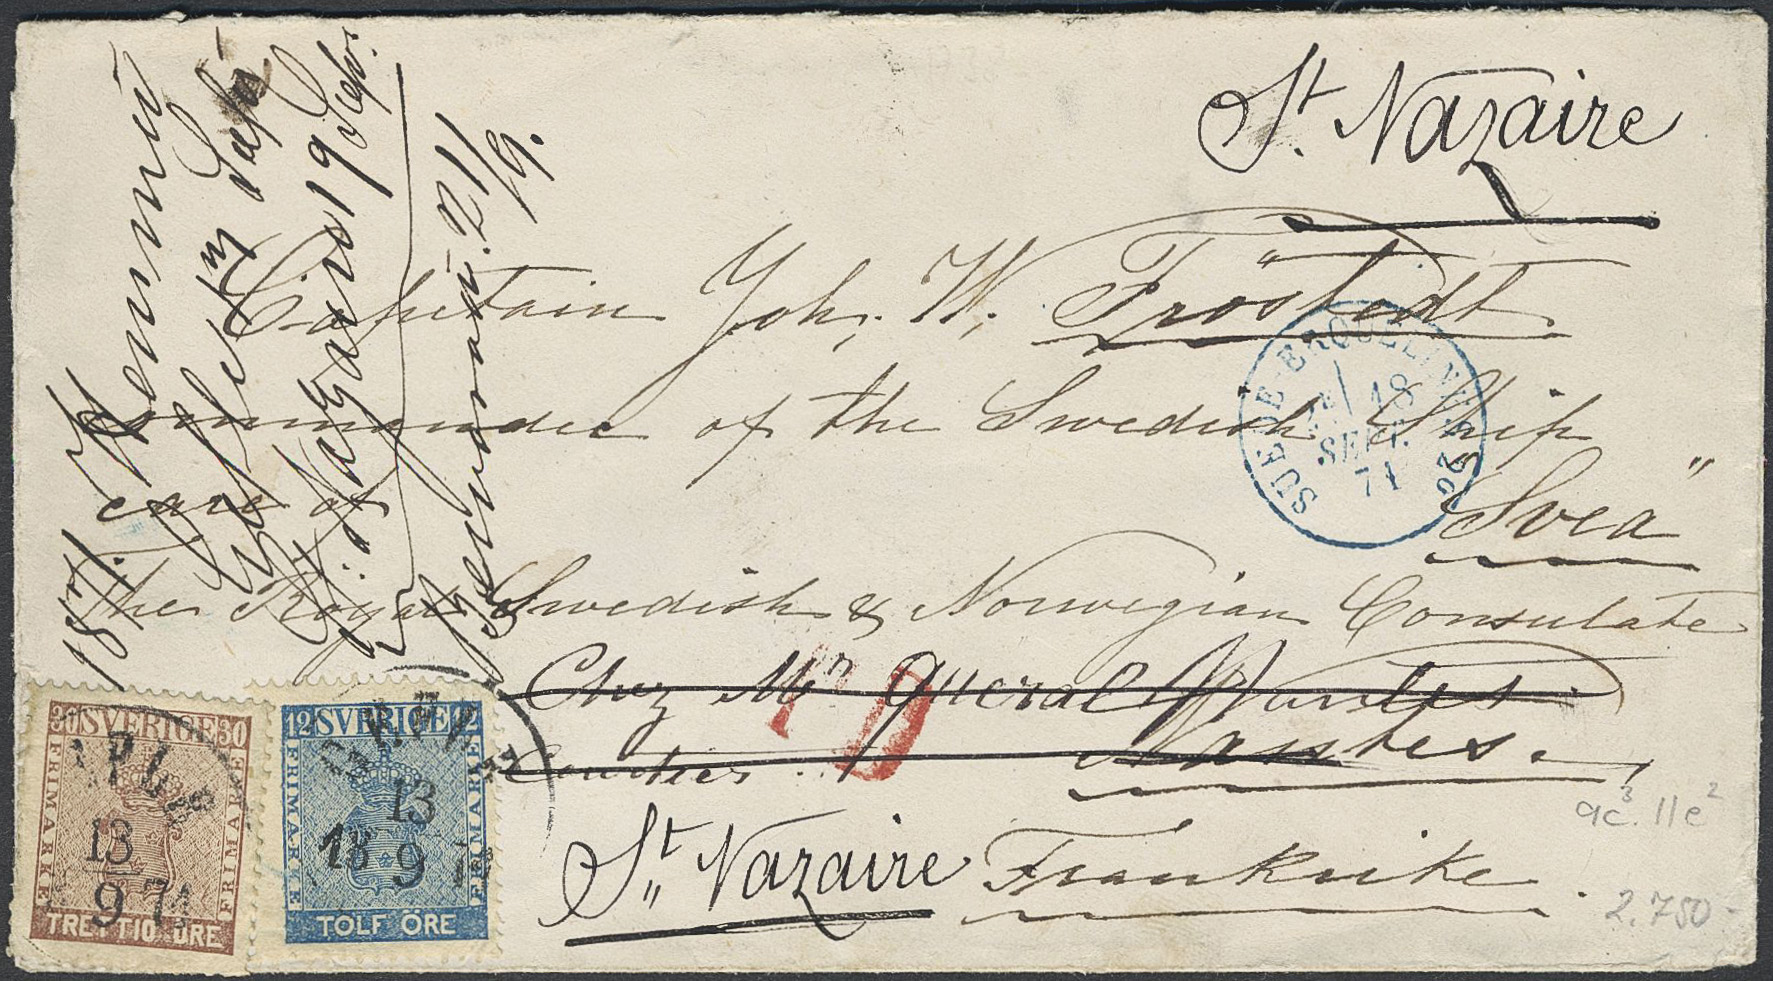 St. Nazaire
Captain Joh. W. Fröstedt
Commander of the Swedish Ship
"Svea"
care of
The Royal Swedish & Norwegian Consulate
Chez Mr Queral Nantes
Courtier
Nantes.
St. Nazaire Frankrike.
1871.
St. Nazaire 19 Sept.
21/9.
SUEDE ERQUELINES
18
SEPT.
71
PD
30 SVERIGE 30
FRIMÄRKE
FRIMÄRKE
TRETTIO ÖRE
13
9 71
12 SVERIGE 12
FRIMÄRKE
FRIMÄRKE
TOLF ÖRE
13
18 9 71
9c³. 11e²
2.750-